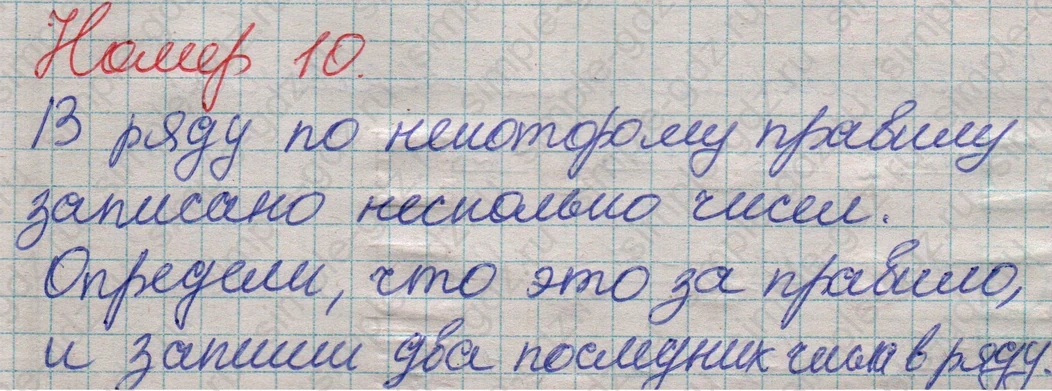 Номер 10.
В ряду по некоторому правилу
записано несколько чисел.
Определи, что это за правило,
и запиши два последних числа в ряду.